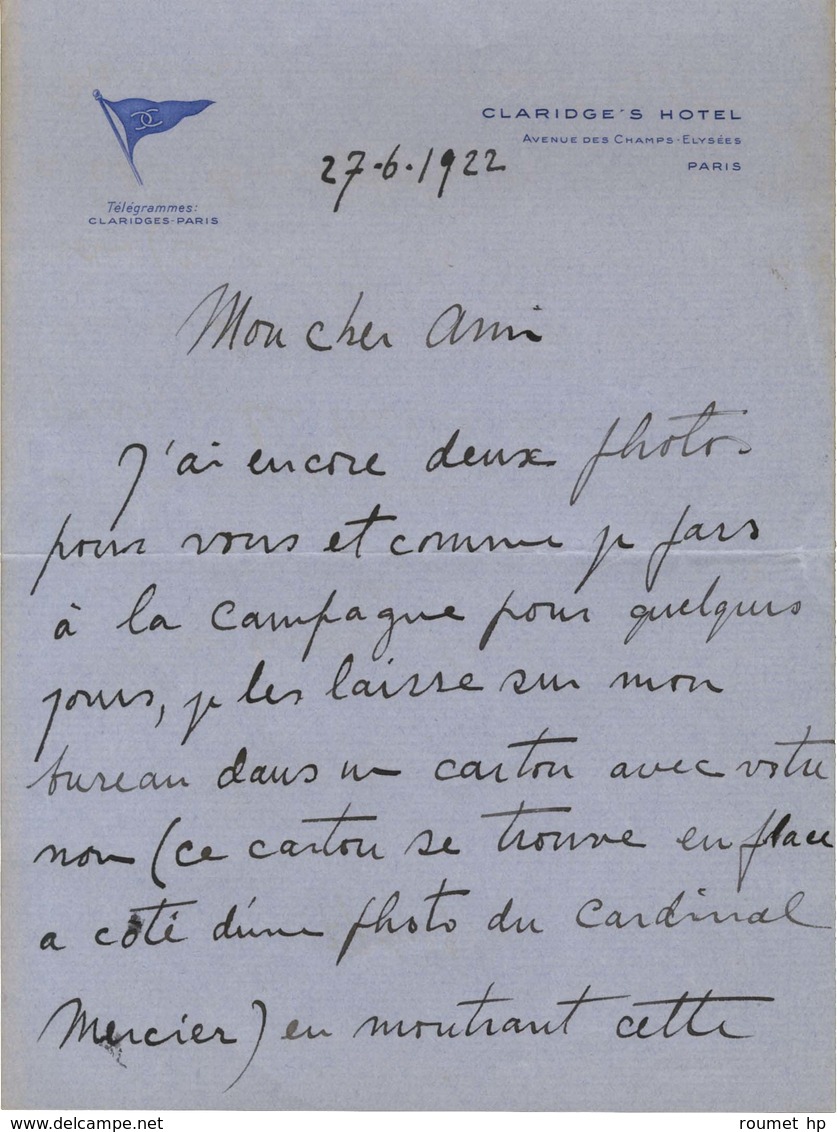 CLARIDGE'S HOTEL
AVENUE DES CHAMPS-ELYSÉES
PARIS
27.6.1922
Télégrammes:
CLARIDGES-PARIS
Mon cher Ami
J'ai encore deux photos
pour vous et comme je pars
à la campagne pour quelques
jours, je les laisse sur mon
bureau dans un carton avec votre
nom (ce carton se trouve en place
a côté d'une photo du Cardinal
Mercier) en montrant cette
www.delcampe.net
roumet hp